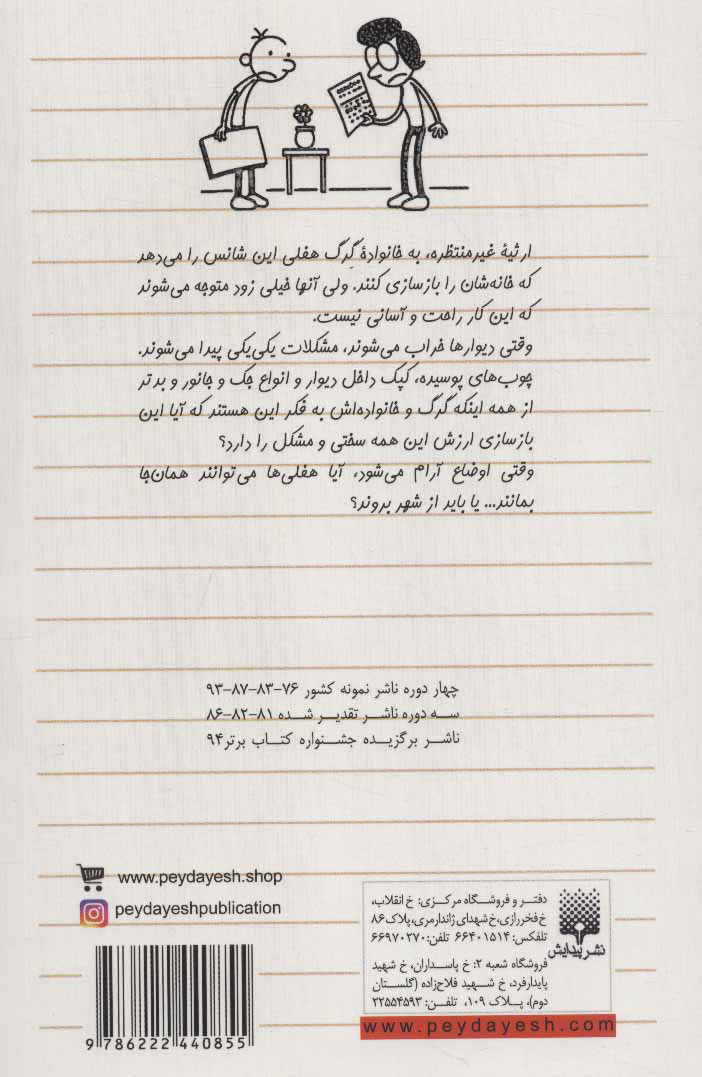 ارثیهٔ غیرمنتظره، به خانوادهٔ گِرگ هفلی این شانس را می‌دهد
که خانه‌شان را بازسازی کنند. ولی آنها خیلی زود متوجه می‌شوند
که این کار راحت و آسانی نیست.
وقتی دیوارها خراب می‌شوند، مشکلات یکی‌یکی پیدا می‌شوند.
چوب‌های پوسیده، کپک داخل دیوار و انواع جک و جانور و بدتر
از همه اینکه گرگ و خانواده‌اش به فکر این هستند که آیا این
بازسازی ارزش این همه سختی و مشکل را دارد؟
وقتی اوضاع آرام می‌شود، آیا هفلی‌ها می‌توانند همان‌جا
بمانند... یا باید از شهر بروند؟
چهار دوره ناشر نمونه کشور ۷۶-۸۳-۸۷-۹۳
سه دوره ناشر تقدیر شده ۸۱-۸۲-۸۶
ناشر برگزیده جشنواره کتاب برتر ۹۴
www.peydayesh.shop
peydayeshpublication
9 786222 440855
نشر پیدایش
دفتر و فروشگاه مرکزی: خ انقلاب،
خ فخررازی، خ شهدای ژاندارمری، پلاک ۸۶
تلفکس: ۶۶۴۰۱۵۱۴ تلفن: ۶۶۹۷۰۲۷۰
فروشگاه شعبه ۲: خ پاسداران، خ شهید
پایدارفرد، خ شهید فلاح‌زاده (گلستان
دوم)، پلاک ۱۰۹، تلفن: ۲۲۵۵۴۵۹۳
www.peydayesh.com